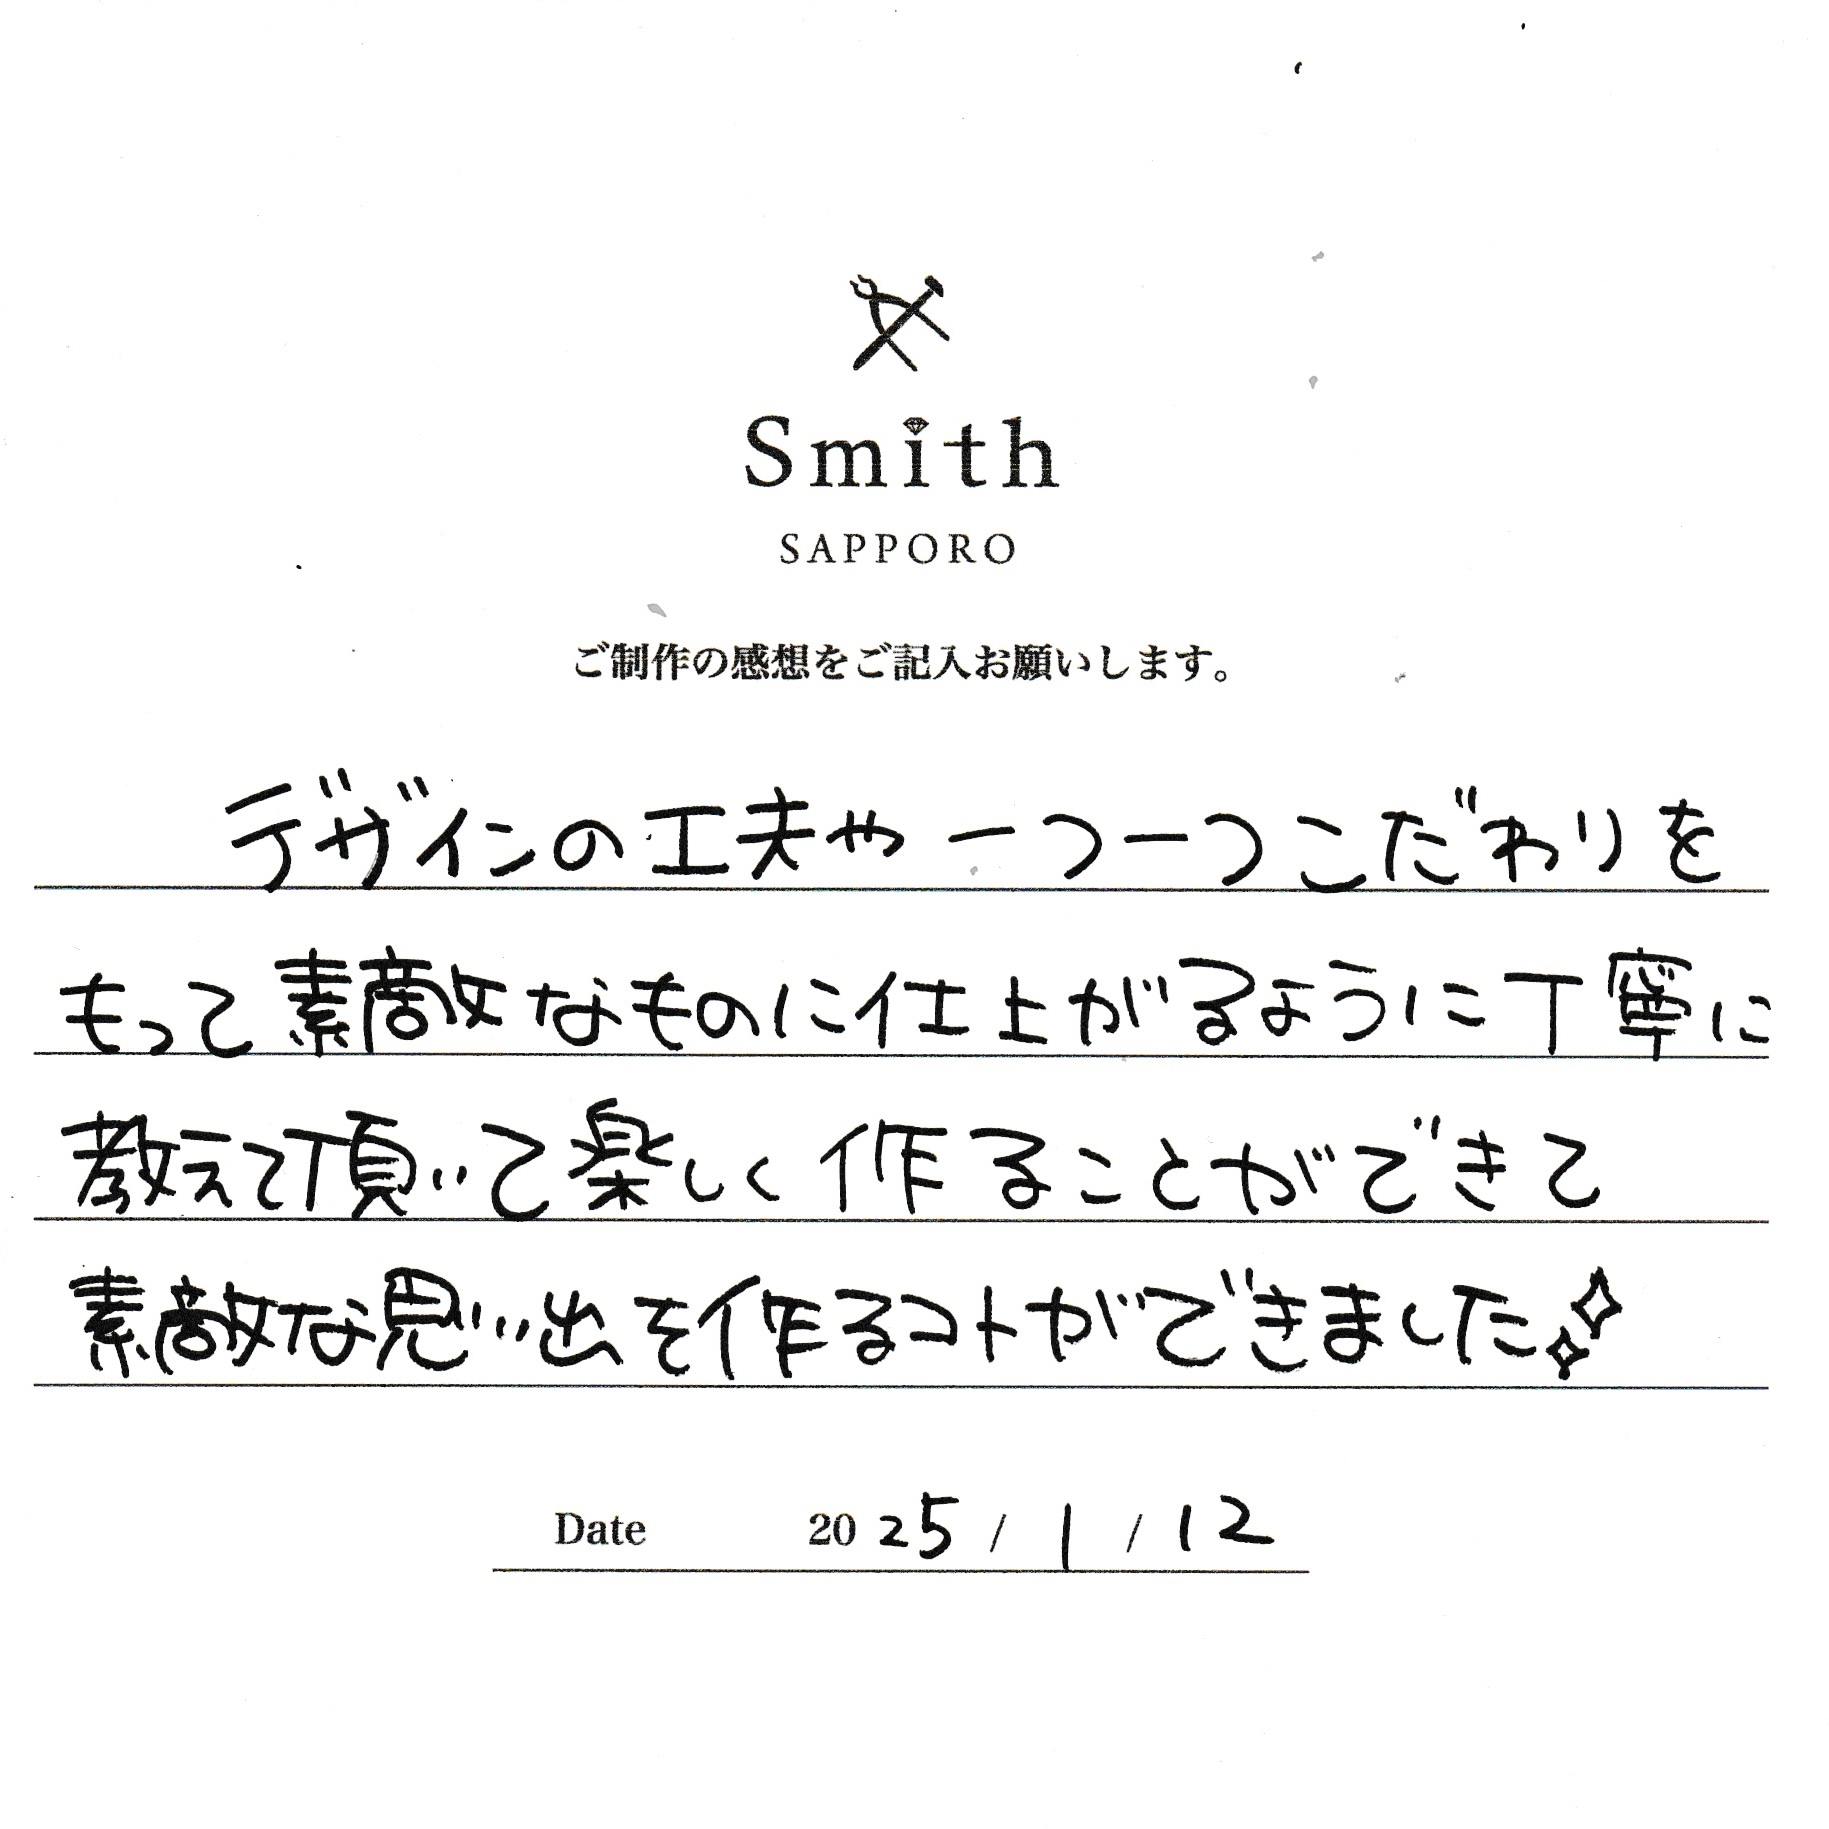 Smith
SAPPORO
ご制作の感想をご記入お願いします。
デザインの工夫や一つ一つこだわりを
もって素敵なものに仕上がるように丁寧に
教えて頂いて楽しく作ることができて
素敵な思い出を作るコトができました
Date 2025 / 1 / 12